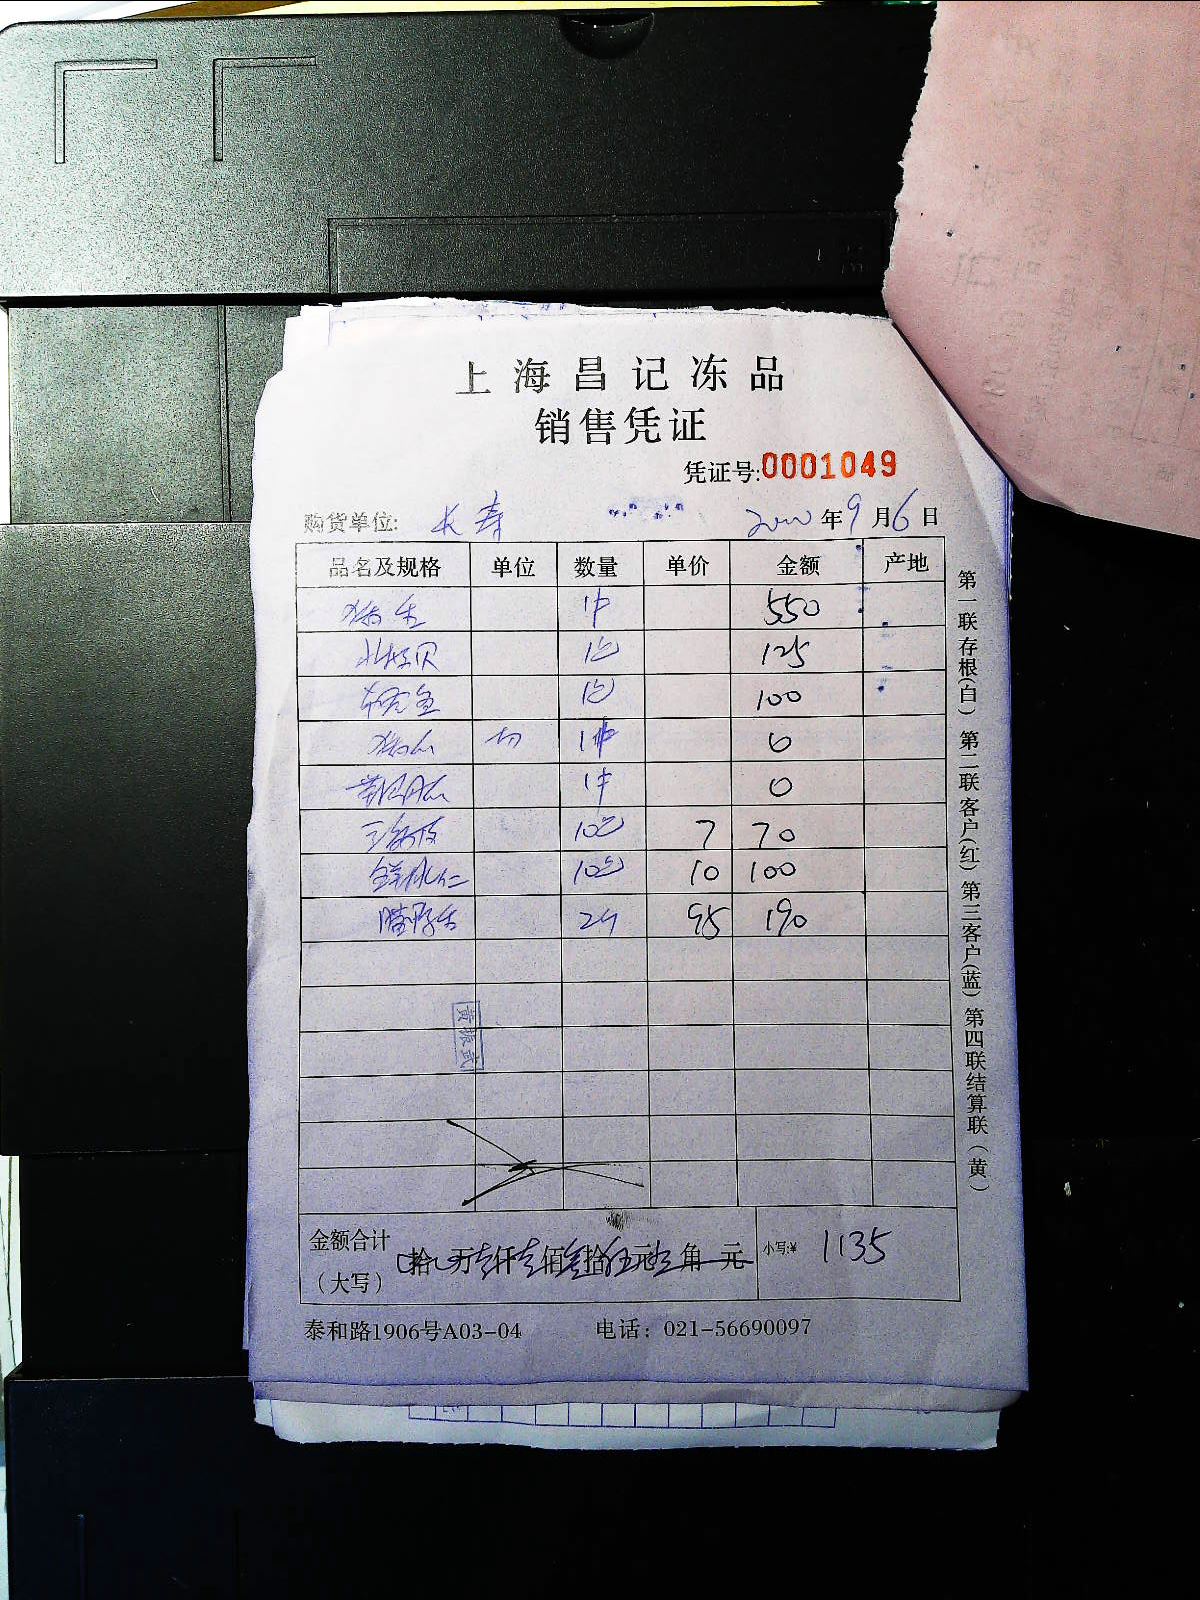 上海昌记冻品
销售凭证
凭证号:0001049
购货单位: 长寿 年9月6日
品名及规格 单位 数量 单价 金额 产地
1件 550
1包 125
1包 100
切 1件 0
1件 0
10包 7 70
10包 10 100
2个 95 190
黄振武
金额合计
(大写) 拾 万壹仟壹佰叁拾伍元 角 元 小写:¥ 1135
泰和路1906号A03-04 电话: 021-56690097
第一联存根(白) 第二联客户(红) 第三客户(蓝) 第四联结算联(黄)